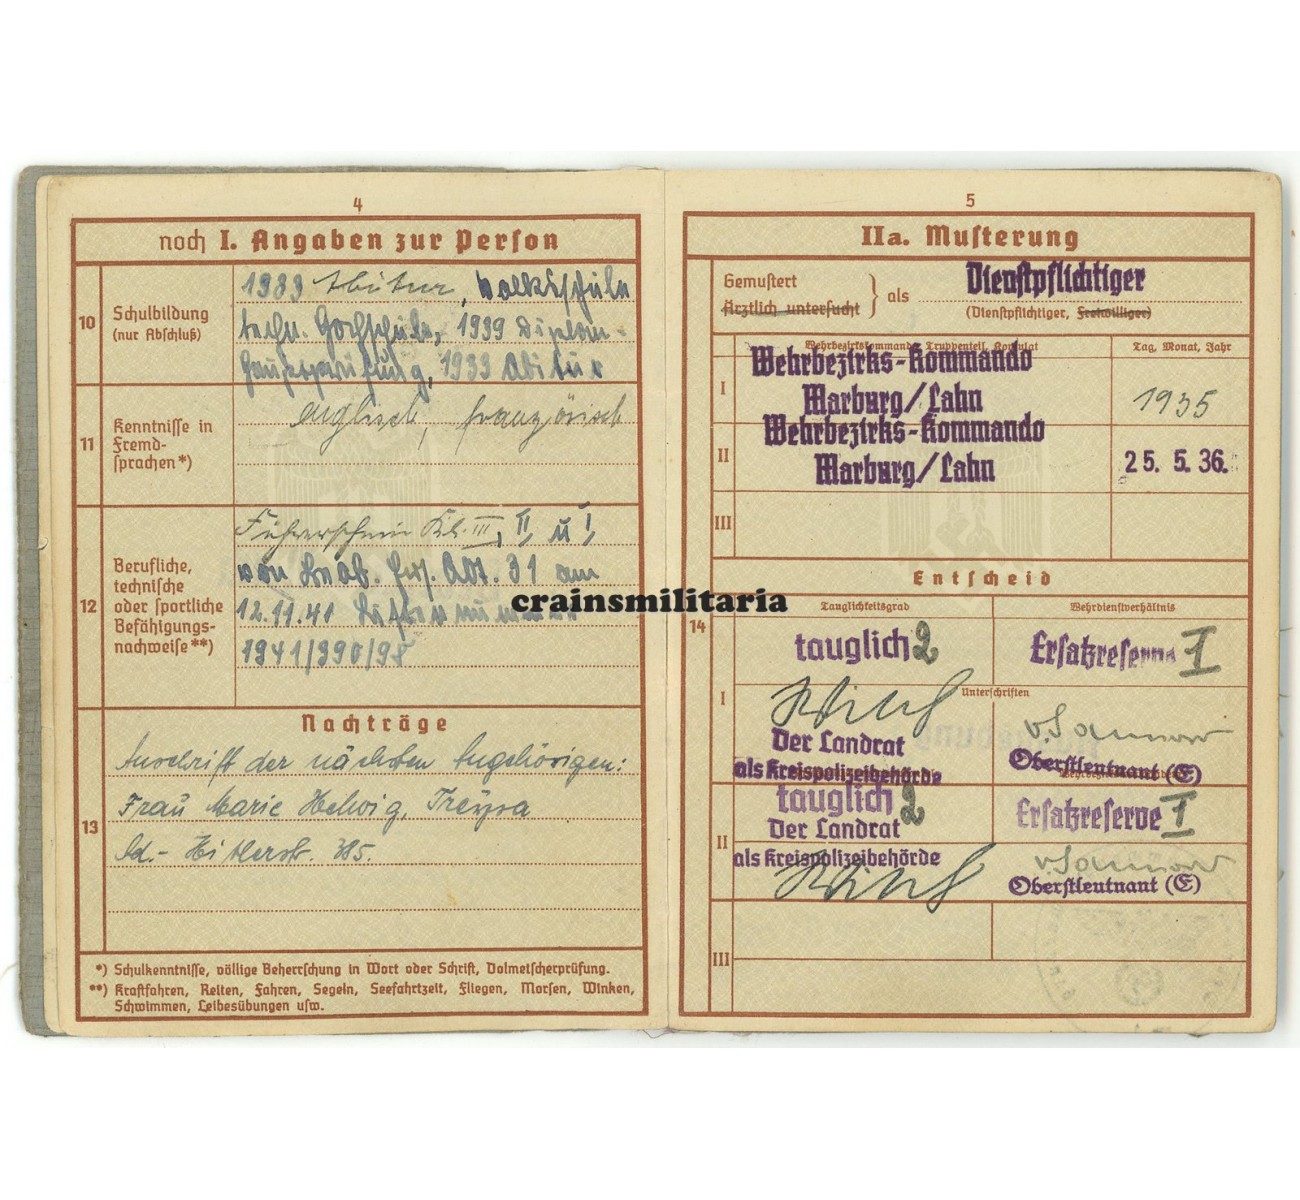 4
noch I. Angaben zur Person
10
Schulbildung
(nur Abschluß)
1933 Abitur, Volksschule
techn. Hochschule, 1939 Diplom-
Hauptprüfung, 1933 Abitur
11
Kenntnisse in
Fremd-
sprachen*)
englisch, französisch
12
Berufliche,
technische
oder sportliche
Befähigungs-
nachweise**)
Führerschein Kl. III, II u I
von Abt. 31 am
12.11.41
1941/390/98
13
Nachträge
Anschrift der nächsten Angehörigen:
Frau Marie Helwig, Treysa
Ad.- Hitlerstr. 385.
*) Schulkenntnisse, völlige Beherrschung in Wort oder Schrift, Dolmetscherprüfung.
**) Kraftfahren, Reiten, Fahren, Segeln, Seefahrtzeit, Fliegen, Morsen, Winken,
Schwimmen, Leibesübungen usw.
crainsmilitaria
5
IIa. Musterung
Gemustert
Ärztlich untersucht
als
Dienstpflichtiger
(Dienstpflichtiger, Freiwilliger)
Wehrbezirkskommando, Truppenteil, Konsulat
Tag, Monat, Jahr
I
Wehrbezirks-Kommando
Marburg/Lahn
1935
II
Wehrbezirks-Kommando
Marburg/Lahn
25. 5. 36.
III
14
Entscheid
Tauglichkeitsgrad
Wehrdienstverhältnis
I
tauglich 2
Ersatzreserve I
Unterschriften
Der Landrat
als Kreispolizeibehörde
Oberstleutnant (E)
II
tauglich 2
Ersatzreserve I
Der Landrat
als Kreispolizeibehörde
Oberstleutnant (E)
III